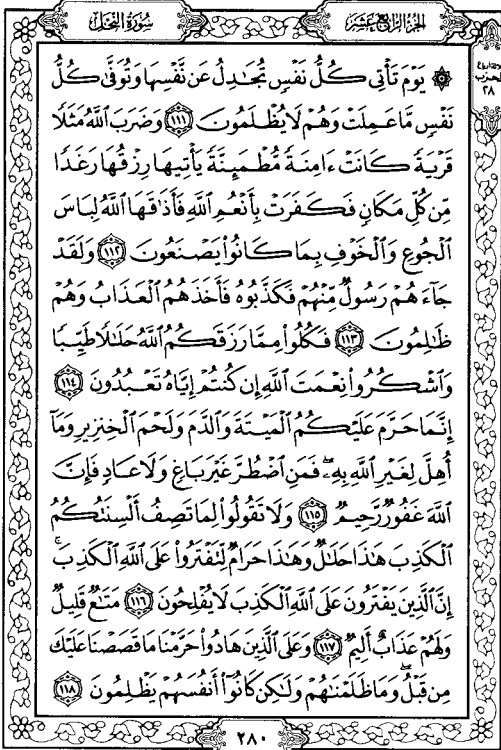 سُورَةُ النَّحۡلِ
الجُزْءُ الرَّابِعَ عَشَرَ
۞ يَوۡمَ تَأۡتِي كُلُّ نَفۡسٖ تُجَٰدِلُ عَن نَّفۡسِهَا وَتُوَفَّىٰ كُلُّ
نَفۡسٖ مَّا عَمِلَتۡ وَهُمۡ لَا يُظۡلَمُونَ ١١١ وَضَرَبَ ٱللَّهُ مَثَلٗا
قَرۡيَةٗ كَانَتۡ ءَامِنَةٗ مُّطۡمَئِنَّةٗ يَأۡتِيهَا رِزۡقُهَا رَغَدٗا
مِّن كُلِّ مَكَانٖ فَكَفَرَتۡ بِأَنۡعُمِ ٱللَّهِ فَأَذَٰقَهَا ٱللَّهُ لِبَاسَ
ٱلۡجُوعِ وَٱلۡخَوۡفِ بِمَا كَانُواْ يَصۡنَعُونَ ١١٢ وَلَقَدۡ
جَآءَهُمۡ رَسُولٞ مِّنۡهُمۡ فَكَذَّبُوهُ فَأَخَذَهُمُ ٱلۡعَذَابُ وَهُمۡ
ظَٰلِمُونَ ١١٣ فَكُلُواْ مِمَّا رَزَقَكُمُ ٱللَّهُ حَلَٰلٗا طَيِّبٗا
وَٱشۡكُرُواْ نِعۡمَتَ ٱللَّهِ إِن كُنتُمۡ إِيَّاهُ تَعۡبُدُونَ ١١٤
إِنَّمَا حَرَّمَ عَلَيۡكُمُ ٱلۡمَيۡتَةَ وَٱلدَّمَ وَلَحۡمَ ٱلۡخِنزِيرِ وَمَآ
أُهِلَّ لِغَيۡرِ ٱللَّهِ بِهِۦۖ فَمَنِ ٱضۡطُرَّ غَيۡرَ بَاغٖ وَلَا عَادٖ فَإِنَّ
ٱللَّهَ غَفُورٞ رَّحِيمٞ ١١٥ وَلَا تَقُولُواْ لِمَا تَصِفُ أَلۡسِنَتُكُمُ
ٱلۡكَذِبَ هَٰذَا حَلَٰلٞ وَهَٰذَا حَرَامٞ لِّتَفۡتَرُواْ عَلَى ٱللَّهِ ٱلۡكَذِبَۚ
إِنَّ ٱلَّذِينَ يَفۡتَرُونَ عَلَى ٱللَّهِ ٱلۡكَذِبَ لَا يُفۡلِحُونَ ١١٦ مَتَٰعٞ قَلِيلٞ
وَلَهُمۡ عَذَابٌ أَلِيمٞ ١١٧ وَعَلَى ٱلَّذِينَ هَادُواْ حَرَّمۡنَا مَا قَصَصۡنَا عَلَيۡكَ
مِن قَبۡلُۖ وَمَا ظَلَمۡنَٰهُمۡ وَلَٰكِن كَانُوٓاْ أَنفُسَهُمۡ يَظۡلِمُونَ ١١٨
٢٨٠
الحزب
٢٨